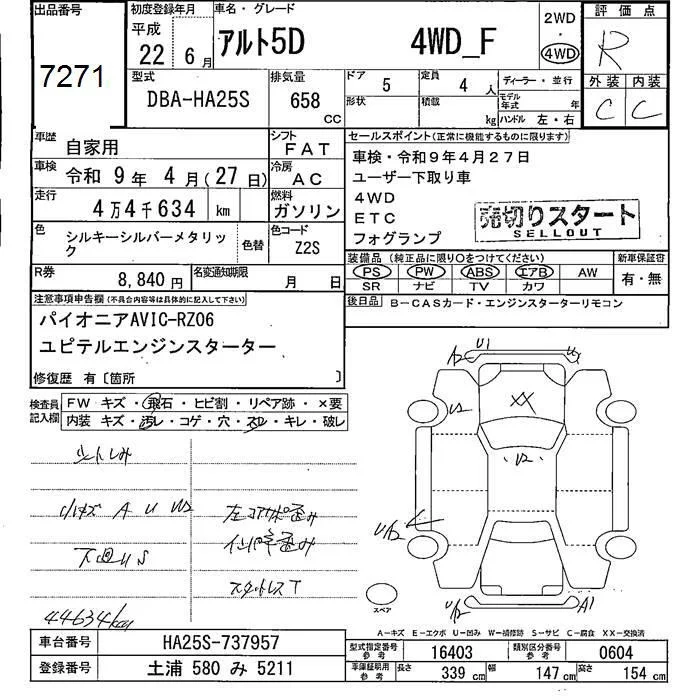 出品番号
7271
初度登録年月
平成
22年 6月
車名・グレード
アルト5D 4WD_F
2WD
・
4WD
評価点
R
型式
DBA-HA25S
排気量
658 CC
ドア
5
定員
4 人
形状
積載
kg
ディーラー・並行
モデル年式 年
ハンドル 左・右
外装 内装
C C
車歴
自家用
シフト
FAT
車検
令和 9年 4月(27日)
冷房
AC
走行
4万4千634 km
燃料
ガソリン
色
シルキーシルバーメタリック
色替
色コード
Z2S
R券
8,840円
名変通知期限
月 日
セールスポイント(正常に機能するものに限ります)
車検・令和9年4月27日
ユーザー下取り車
4WD
ETC
フォグランプ
売切りスタート
SELLOUT
装備品(純正品に限り○をつけてください)
新車保証書
PS PW ABS エアB AW
SR ナビ TV カワ
有・無
後日品 B-CASカード・エンジンスターターリモコン
注意事項申告欄(不具合内容等は具体的に記入して下さい)
パイオニアAVIC-RZ06
ユピテルエンジンスターター
修復歴 有〔箇所 〕
検査員記入欄
FW キズ・飛石・ヒビ割・リペア跡・×要
内装 キズ・汚レ・コゲ・穴・スレ・キレ・破レ
小キズ A U W2
下回 U S
スタットレス T
44634km
U1
XX
U2
A1
スペア
A-キズ E-エクボ U-凹み W-補修跡 S-サビ C-腐食 XX-交換済
車台番号 HA25S-737957
登録番号 土浦 580 み 5211
型式指定番号 参考 16403
類別区分番号 参考 0604
車庫証明用 参考 長さ 339 cm 幅 147 cm 高さ 154 cm